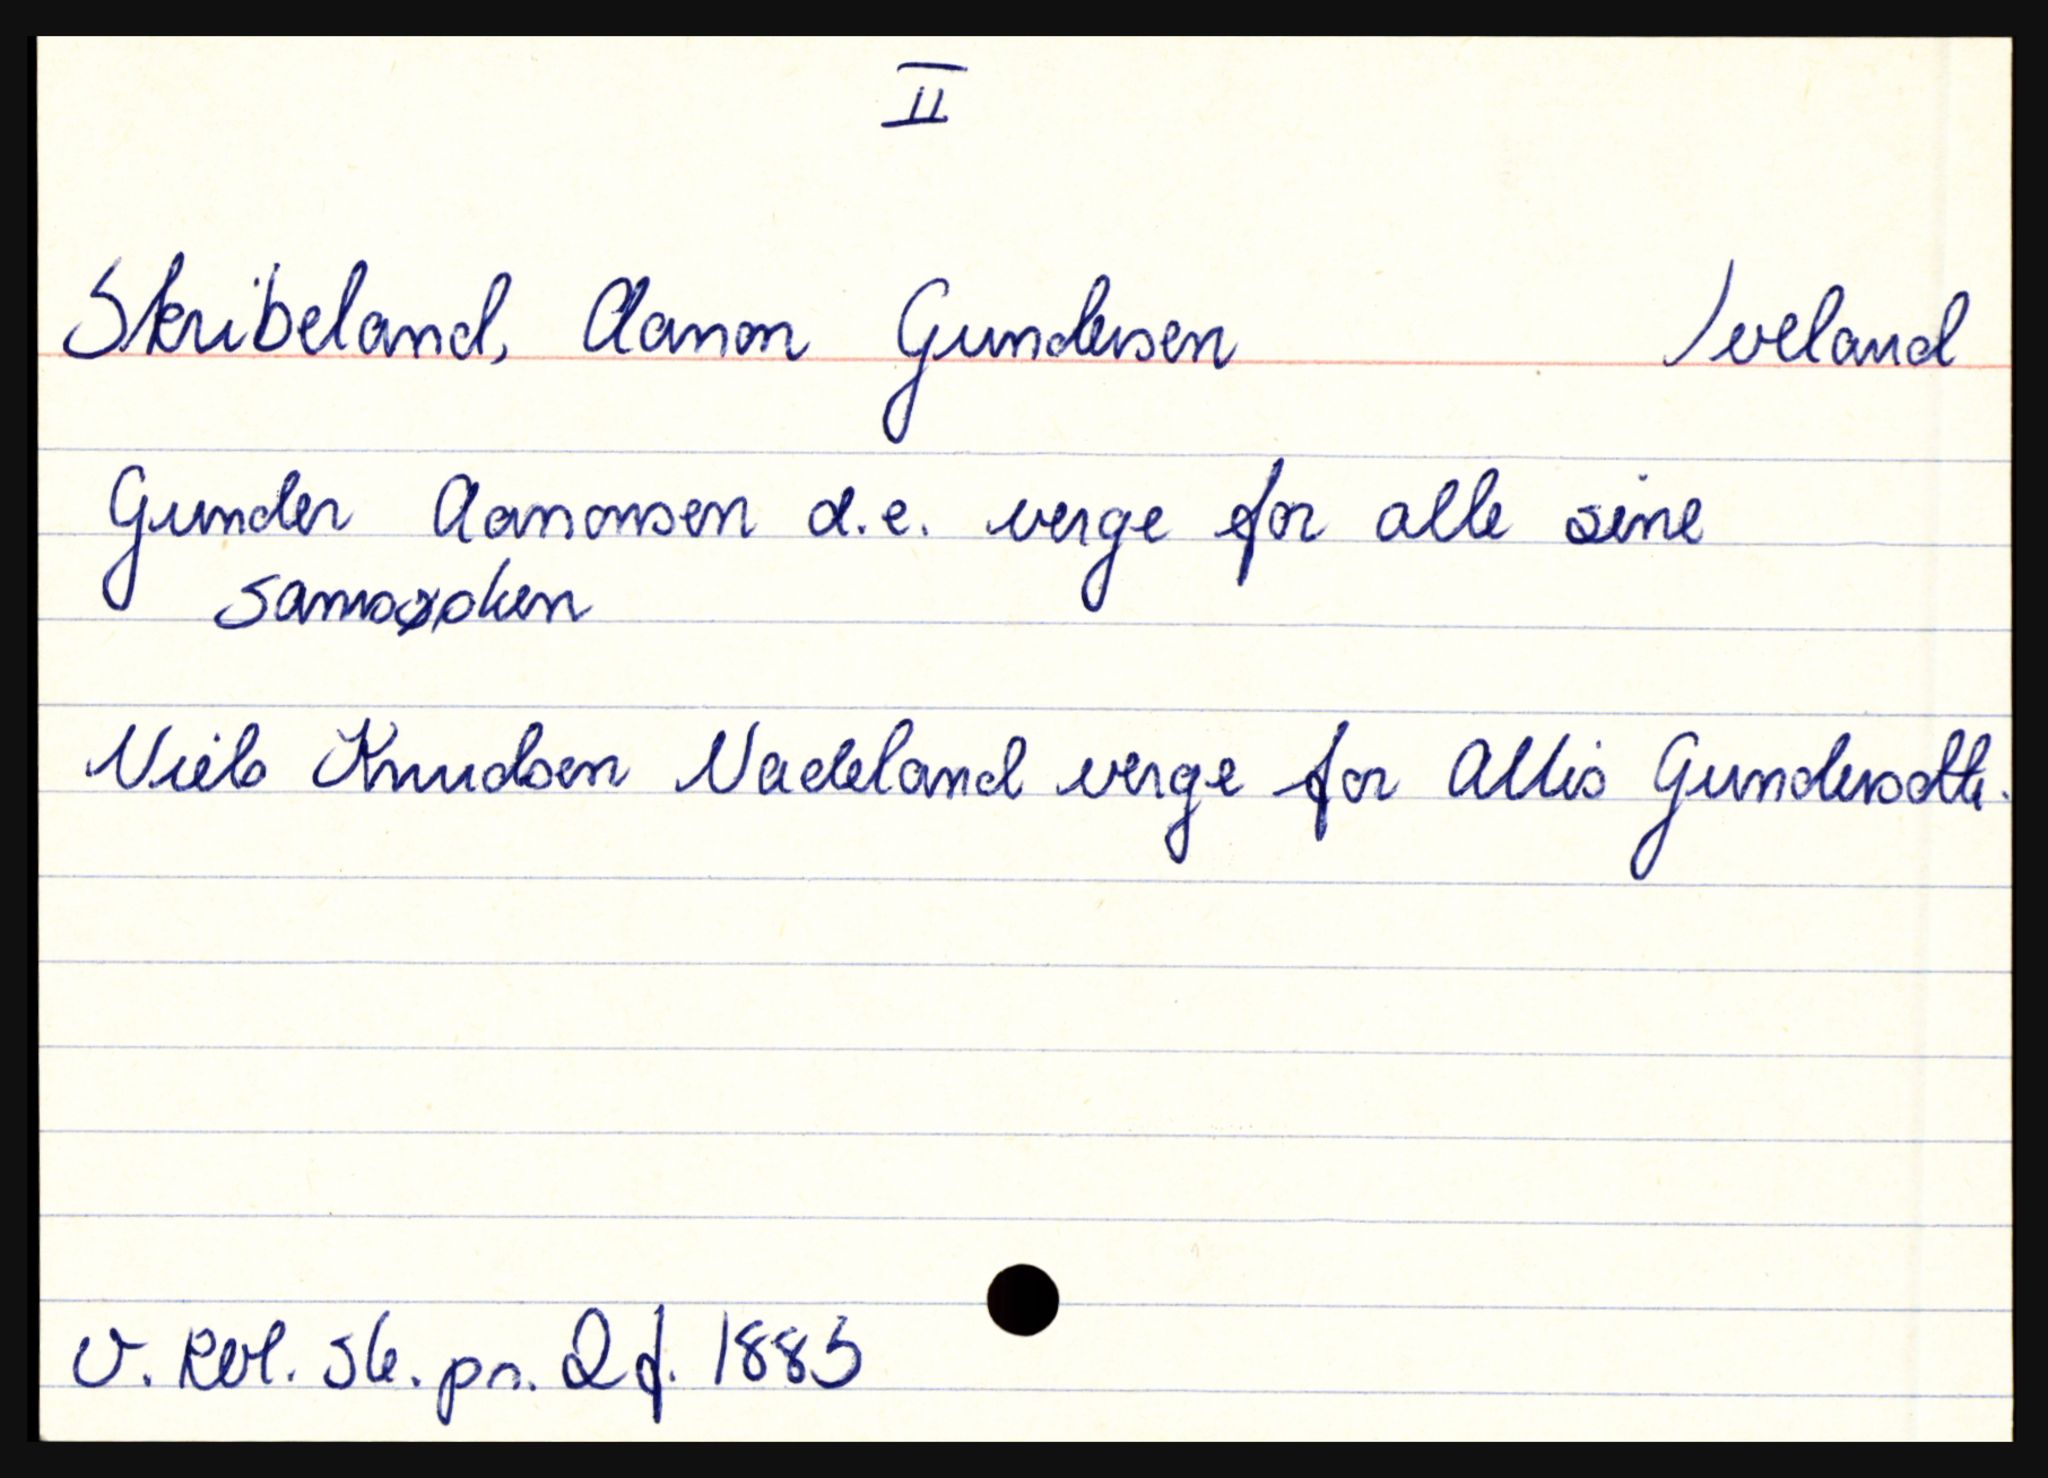 II
Skribeland, Aanon Gundersen Iveland
Gunder Aanonsen d.e. verge for alle sine
samsøsken
Niels Knudsen Nadeland verge for Allis Gundersdtr.
V. Rbl. Sk. pr. 2 f. 1883